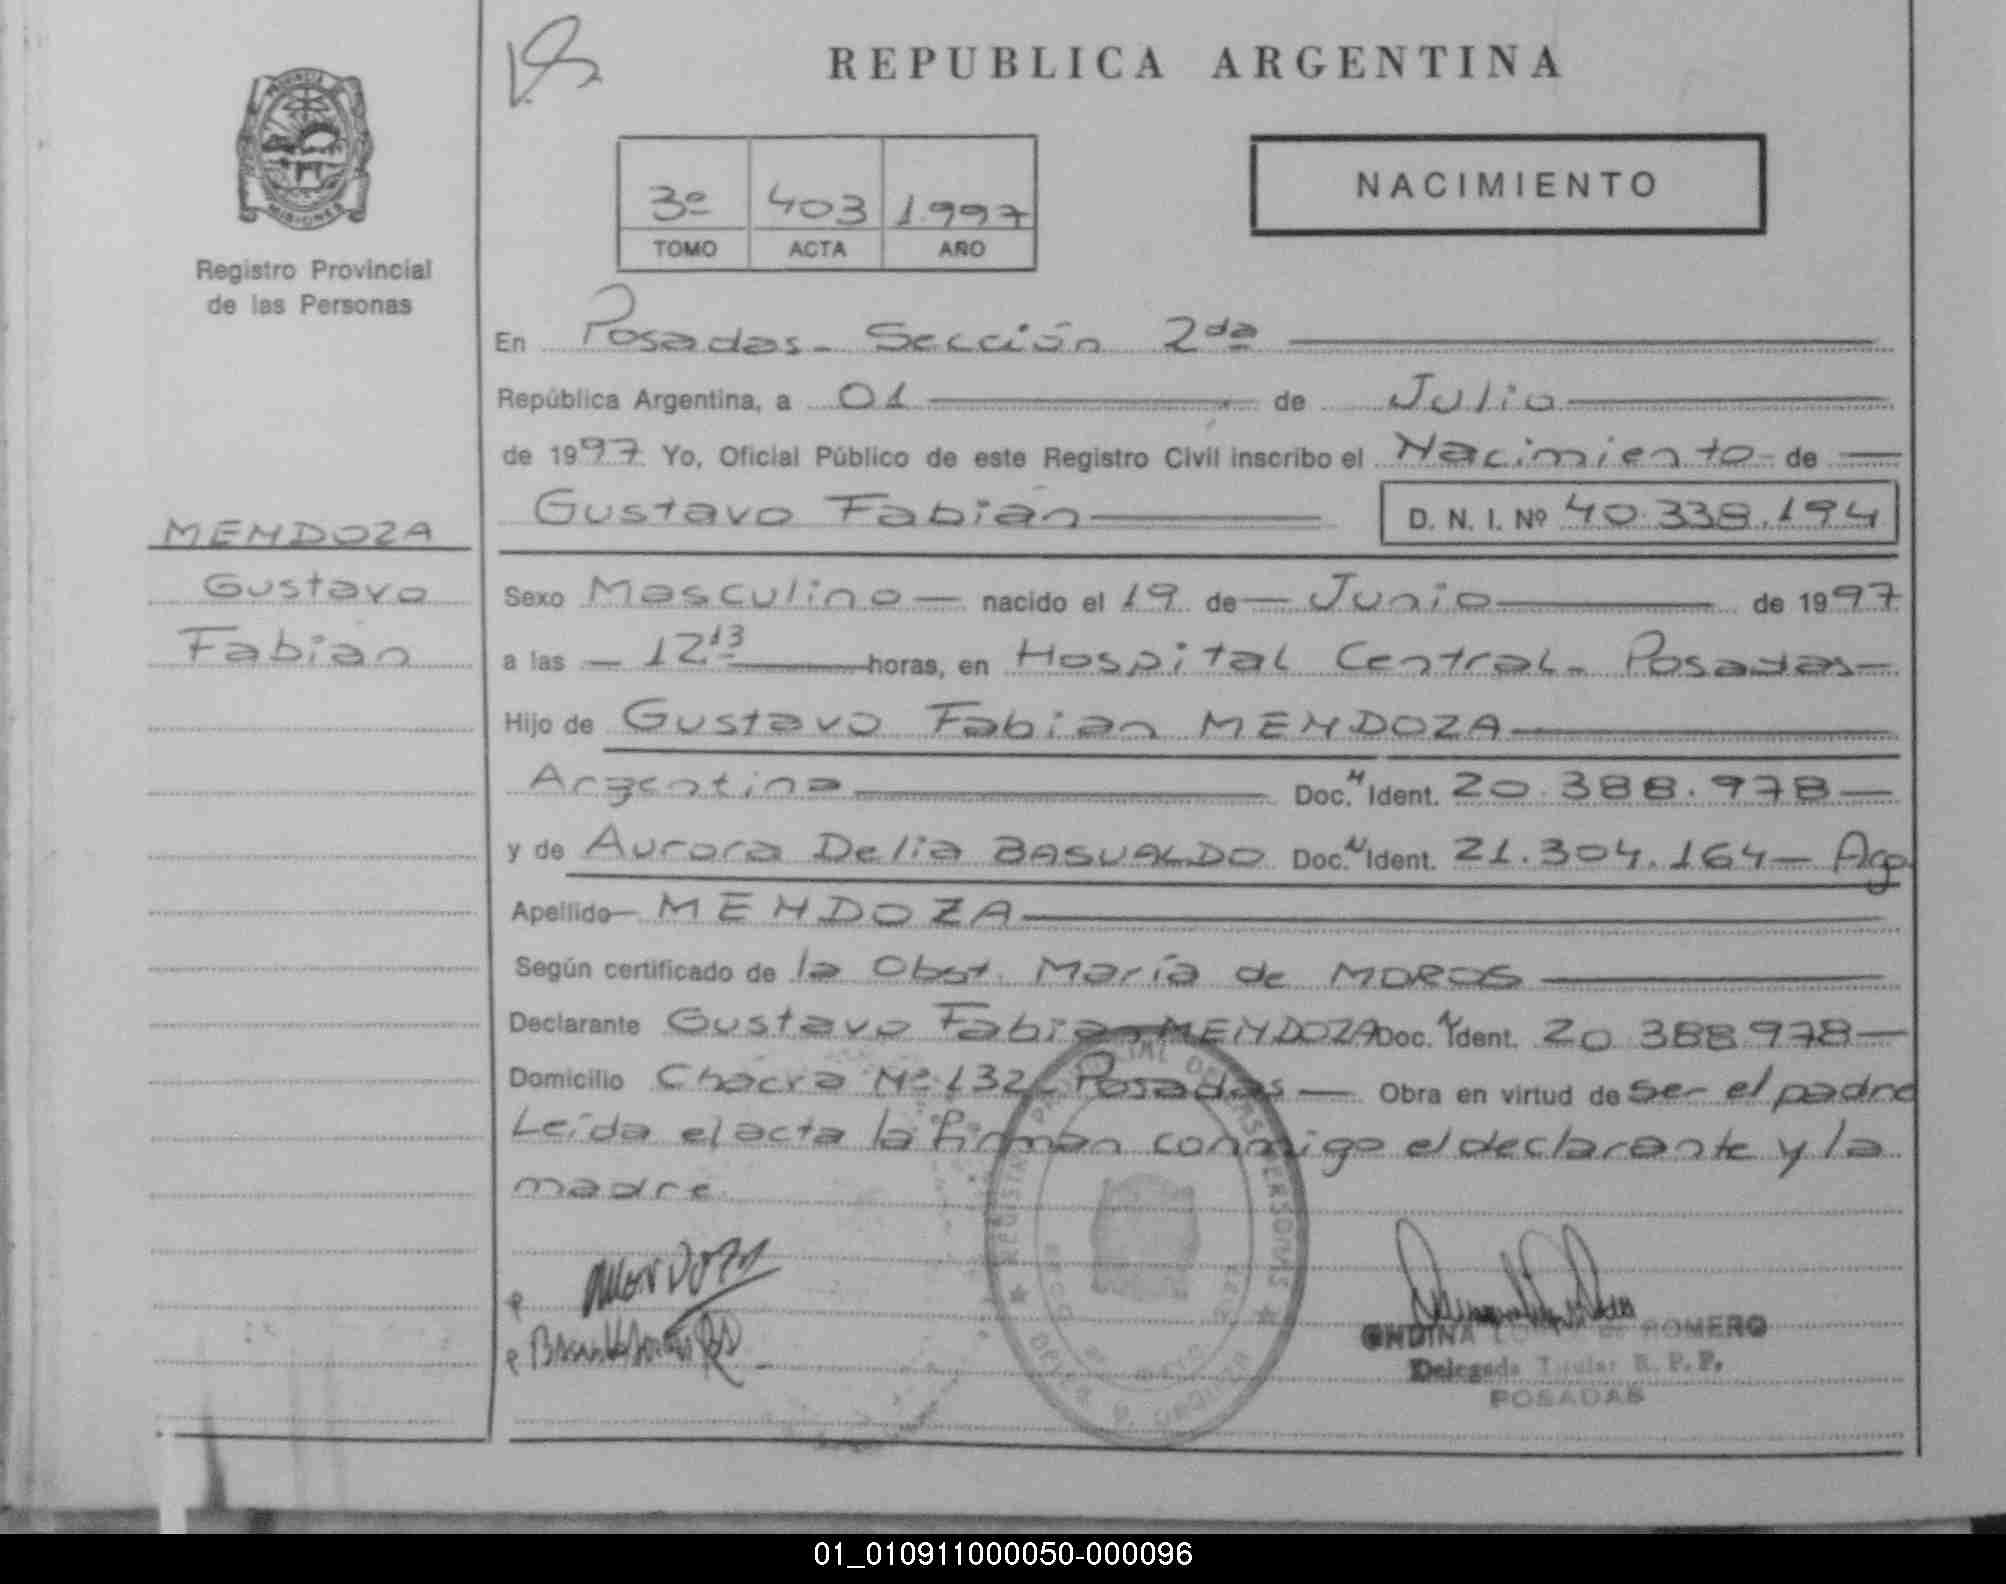 REPUBLICA ARGENTINA
PROVINCIA
MISIONES
Registro Provincial
de las Personas
3º 403 1.997
TOMO ACTA AÑO
NACIMIENTO
En Posadas - Sección 2da
República Argentina, a 01 de Julio
de 1997 Yo, Oficial Público de este Registro Civil inscribo el Nacimiento de
Gustavo Fabian D. N. I. Nº 40.338.194
MENDOZA
Gustavo
Fabian
Sexo Masculino nacido el 19 de Junio de 1997
a las 12 13 horas, en Hospital Central - Posadas
Hijo de Gustavo Fabian MENDOZA
Argentina Doc. Ident. 20.388.978
y de Aurora Delia BASUALDO Doc. Ident. 21.304.164 - Arg.
Apellido MENDOZA
Según certificado de la Obst. María de MOROS
Declarante Gustavo Fabian MENDOZA Doc. Ident. 20.388.978
Domicilio Chacra Nº 132 - Posadas - Obra en virtud de Ser el padre
Leída el acta la firman conmigo el declarante y la
madre.
MENDOZA
ONDINA ROMERO
Delegada Titular R. P. P.
POSADAS
01_010911000050-000096